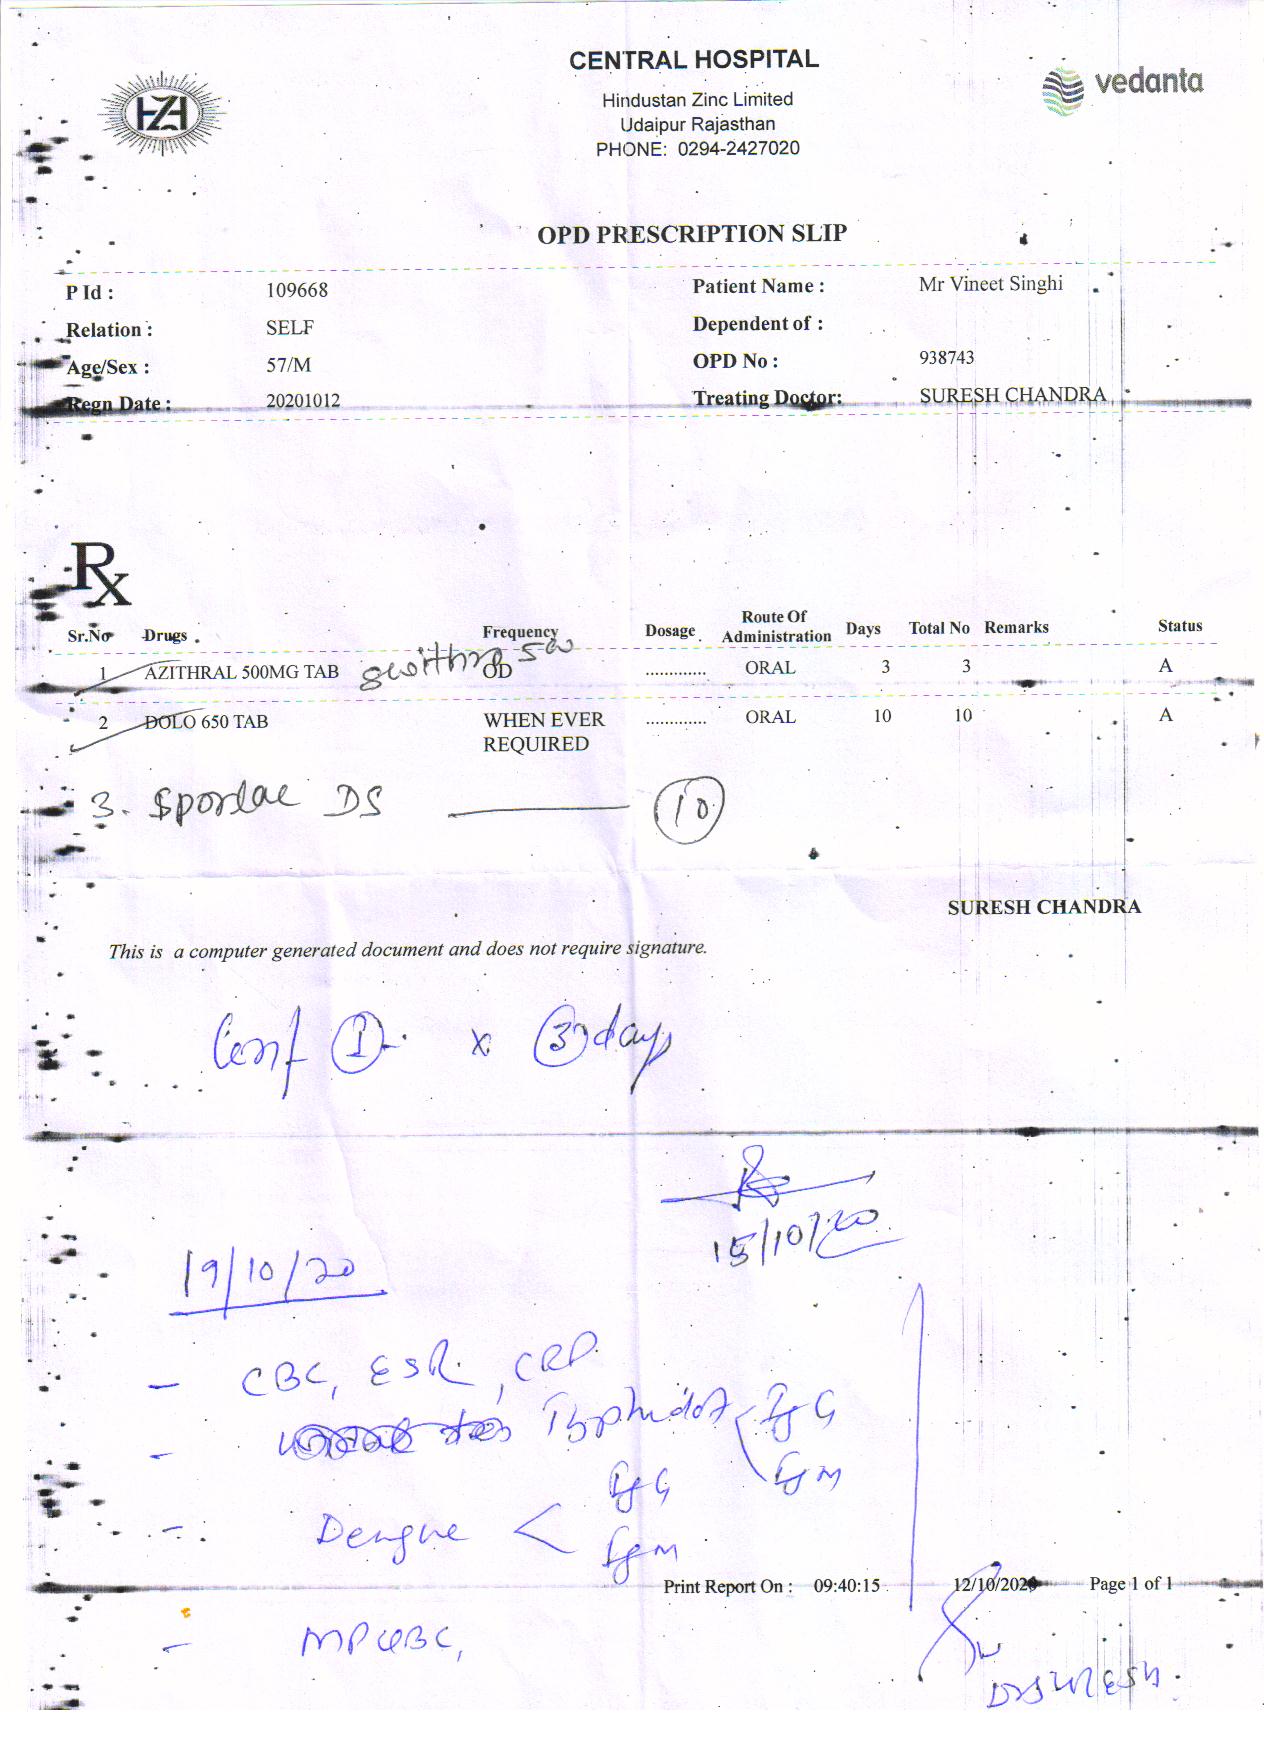 CENTRAL HOSPITAL
Hindustan Zinc Limited
Udaipur Rajasthan
PHONE: 0294-2427020
HZL
vedanta
OPD PRESCRIPTION SLIP
P Id : 109668 Patient Name : Mr Vineet Singhi
Relation : SELF Dependent of :
Age/Sex : 57/M OPD No : 938743
Regn Date : 20201012 Treating Doctor: SURESH CHANDRA
Rx
Sr.No Drugs Frequency Dosage Route Of Administration Days Total No Remarks Status
1 AZITHRAL 500MG TAB 500 OD ............. ORAL 3 3 A
2 DOLO 650 TAB WHEN EVER REQUIRED ............. ORAL 10 10 A
3. Sporlac DS 10
SURESH CHANDRA
This is a computer generated document and does not require signature.
Cont 1 x 3 days
15/10/20
19/10/20
- CBC, ESR, CRP
- Typhidot < IgG
IgM
- Dengue < IgG
IgM
Print Report On : 09:40:15 12/10/2020 Page 1 of 1
- MPQBC,
Dr SURESH.